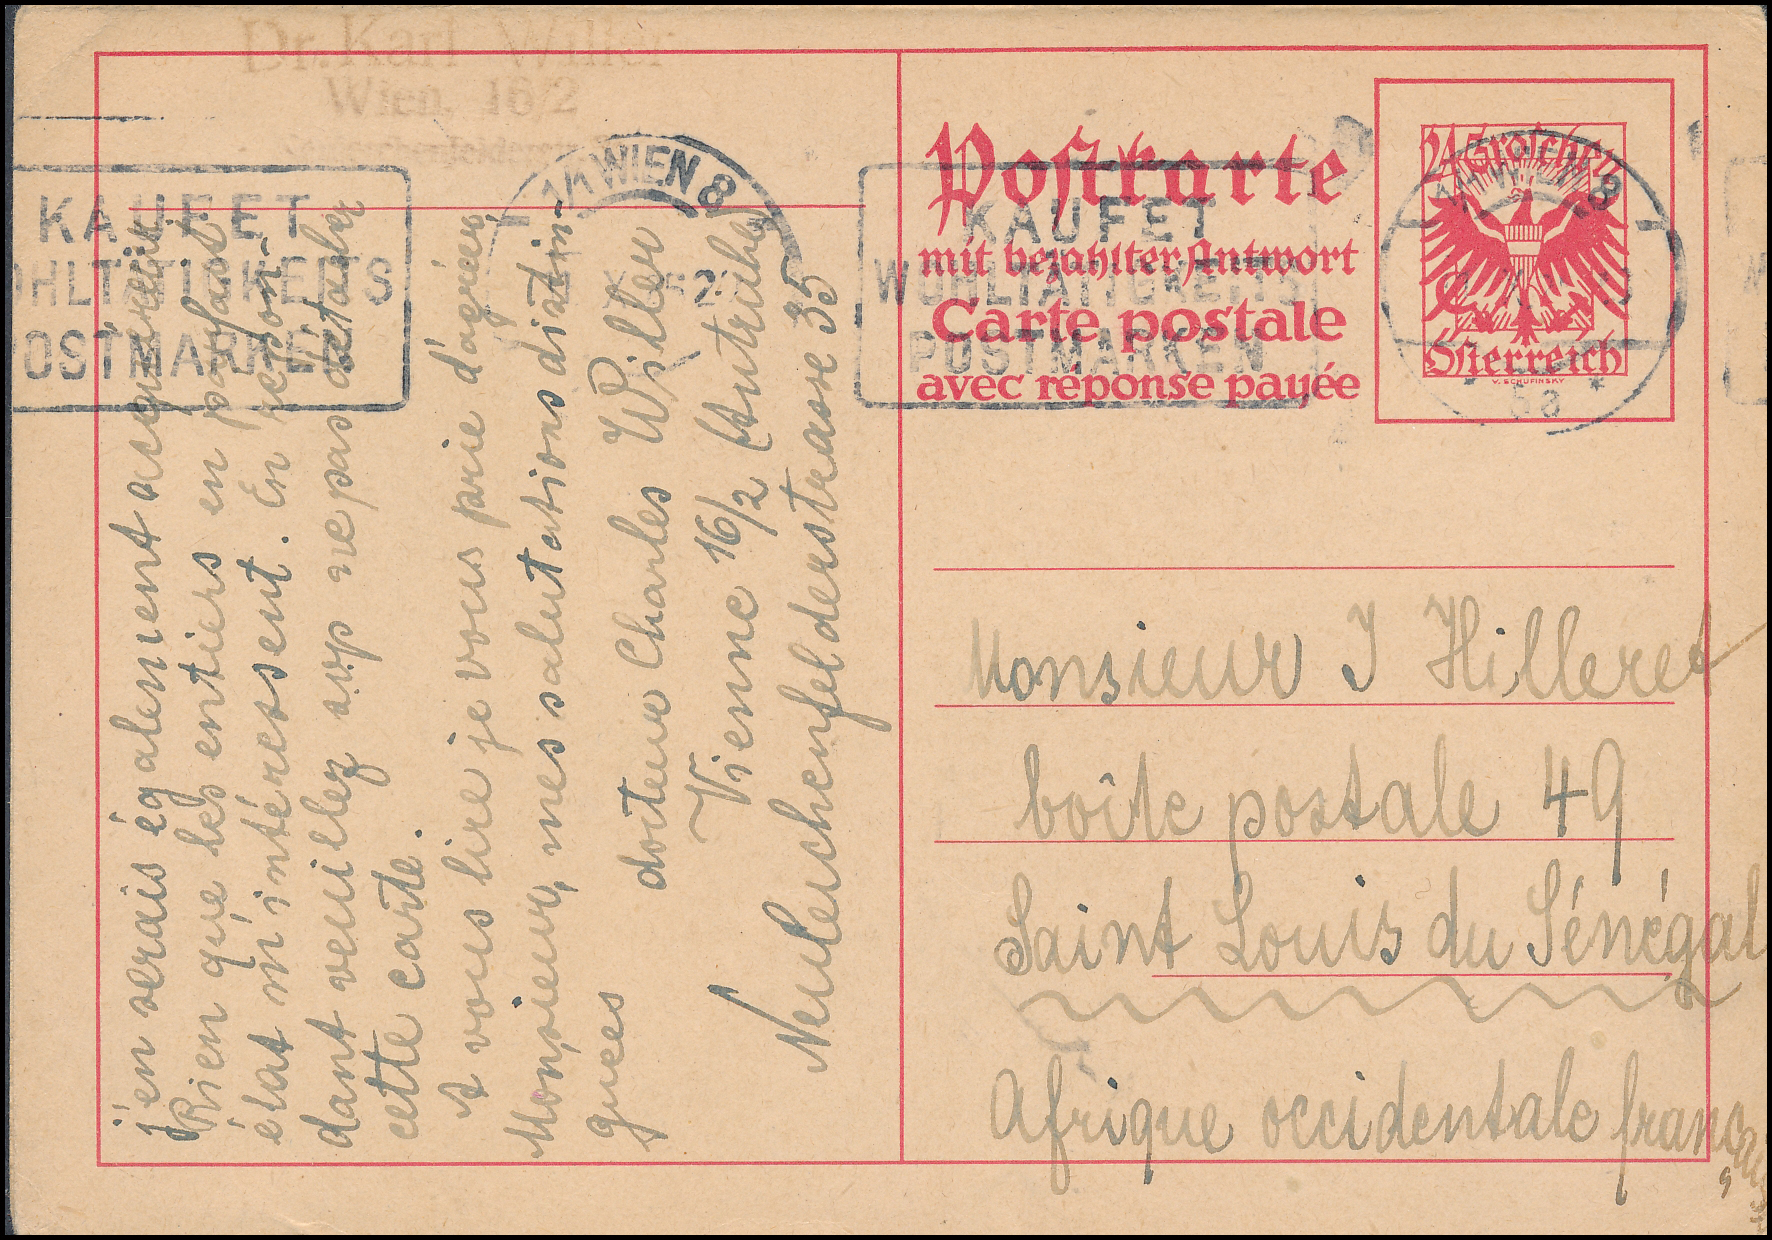 Dr. Karl Willer
Wien, 16/2
1/1 WIEN 8
KAUFET
WOHLTÄTIGKEITS
POSTMARKEN
Postkarte
mit bezahlter Antwort
Carte postale
avec réponse payée
24 Groschen
Österreich
V. SCHUFINSKY
1/1 WIEN 8
8a
KAUFET
WOHLTÄTIGKEITS
POSTMARKEN
j'en serais également acquéreur
Rien que les entiers en parfait
état m'intéressent. En répon-
dant veuillez svp ne pas détacher
cette carte.
A vous lire je vous prie d'agréer,
Monsieur, mes salutations distin-
guées
docteur Charles Willer
Vienne 16/2 (Autriche)
Neulerchenfelderstrasse 35
Monsieur J Hilleret
boîte postale 49
Saint Louis du Sénégal
Afrique occidentale française